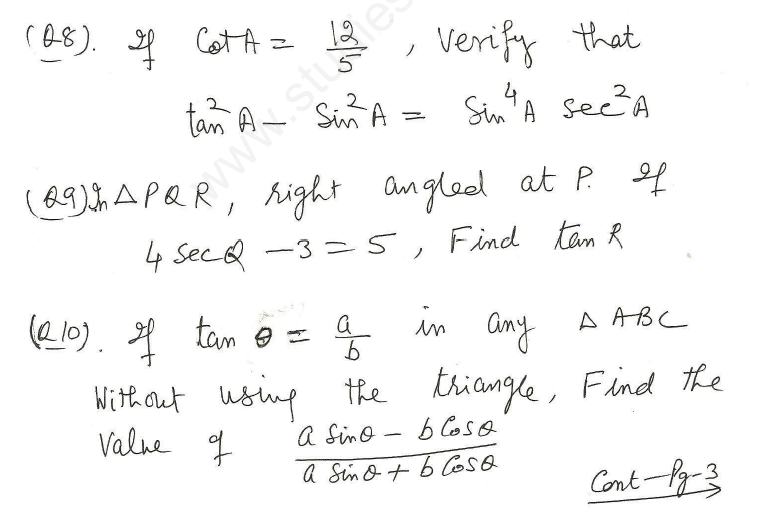 (Q8). If Cot A = 12/5 , Verify that
tan²A - Sin²A = Sin⁴A sec²A
(Q9) In △PQR, right angled at P. If
4 SecQ - 3 = 5, Find tan R
(Q10). If tan θ = a/b in any △ ABC
Without using the triangle, Find the
Value of (a Sinθ - b Cosθ)/(a Sinθ + b Cosθ)
Cont-Pg-3
www.studies